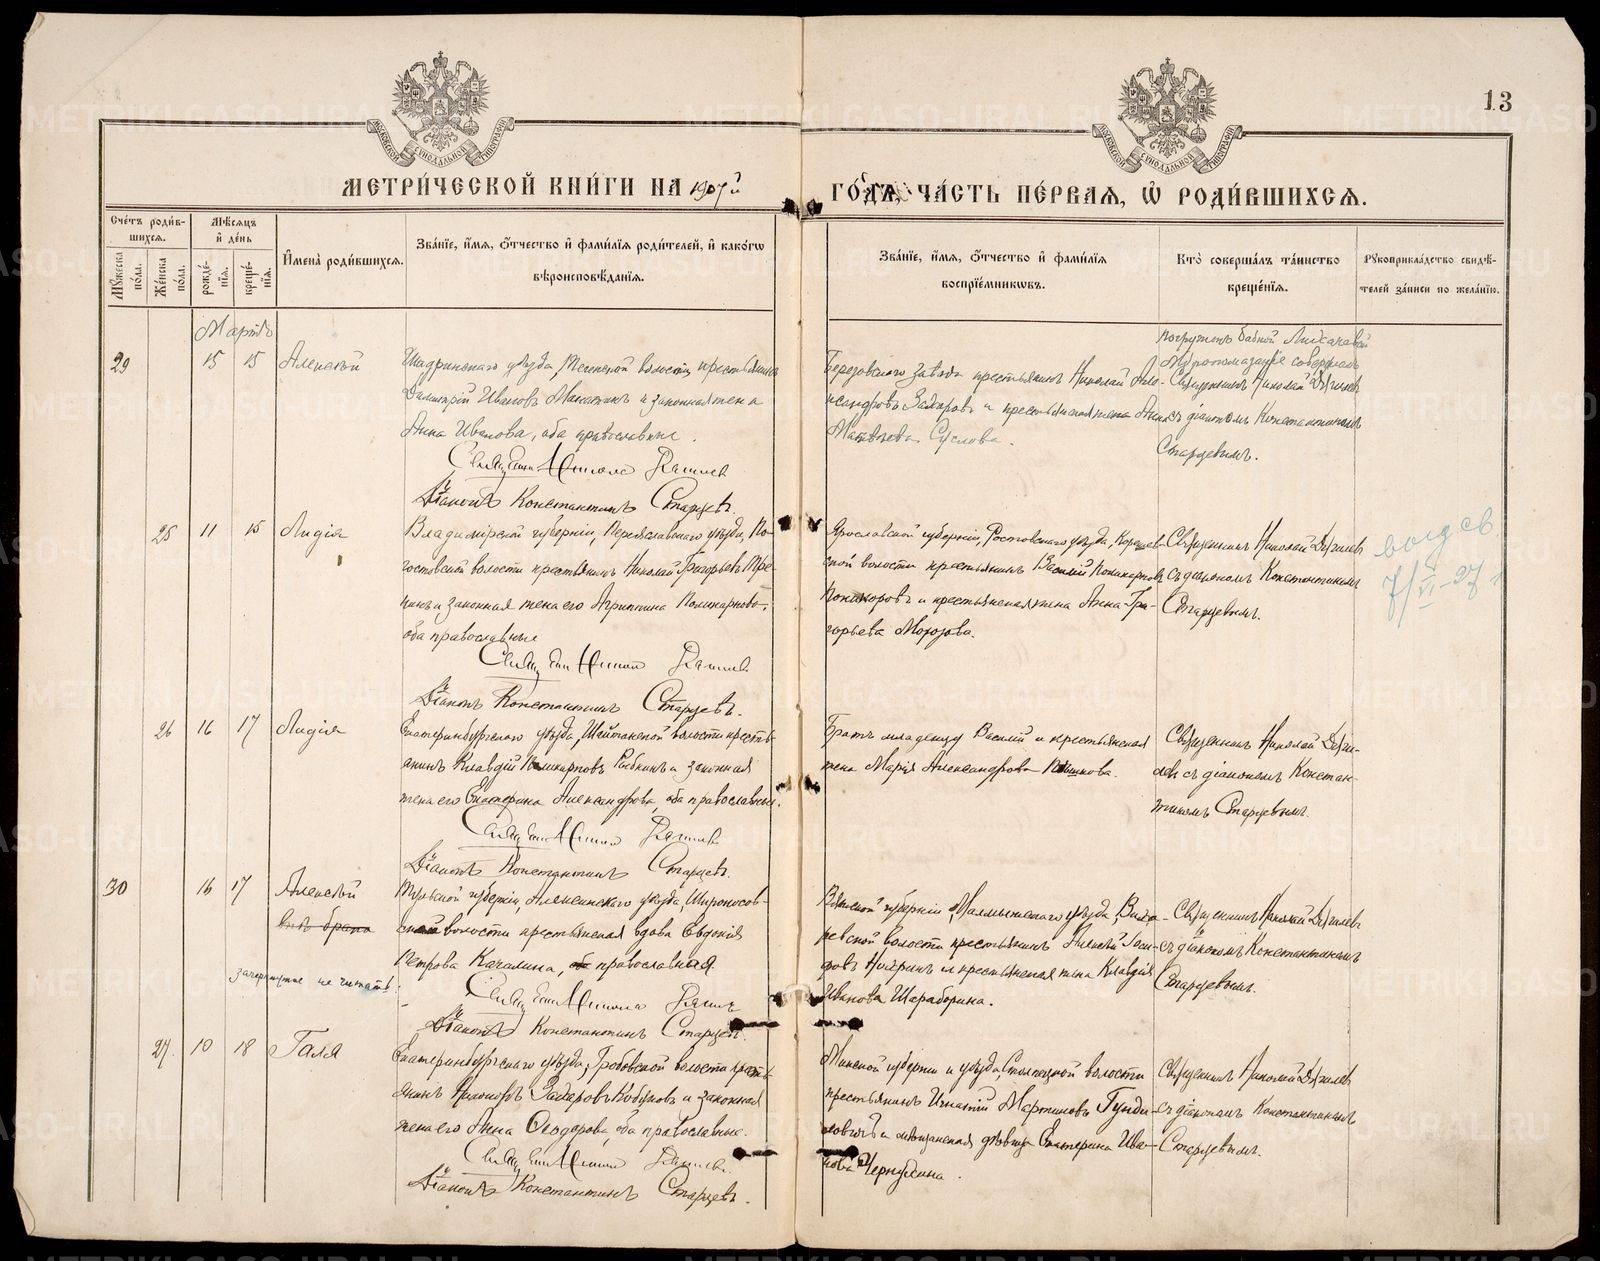 13
МЕТРИ́ЧЕСКОЙ КНИ́ГИ НА 1907й ГО́ДЪ, ЧА́СТЬ ПЕ́РВАЯ, Ѽ РОДИ́ВШИХСЯ.
Сче́тъ роди́в-
шихся.
Мѣ́сяцъ
и҆ де́нь
Мꙋ́жеска
по́ла.
Же́нска
по́ла.
рожде́-
нїя.
креще́-
нїя.
И҆мена̀ роди́вшихся.
Зва́нїе, и҆́мя, ѻ҆́тчество и҆ фами́лїя роди́телей, и҆ како́гѡ
вѣроисповѣ́данїя.
Зва́нїе, и҆́мя, ѻ҆́тчество и҆ фами́лїя
воспрїе́мникѡвъ.
Кто̀ соверша́лъ та́инство
креще́нїя.
Рꙋкоприкла́дство свидѣ́-
телей за́писи по жела́нїю.
Мартъ
29 15 15 Алексѣй
Шадринскаго уѣзда, волости крестьянинъ
Димитрій Ивановъ и законная жена
Анна Иванова, оба православные.
Священникъ Николай
Діаконъ Константинъ Старцевъ.
Березовскаго завода крестьянинъ Николай Але-
ксандровъ и крестьянская жена Анна
Суслова.
погруженъ бабкой
Мѵропомазаніе совершалъ
Священникъ Николай
съ діакономъ Константиномъ
Старцевымъ.
25 11 15 Лидія
Владимірской губерніи, Переяславскаго уѣзда, По-
гостовской волости крестьянинъ Николай Григорьевъ
и законная жена его Агриппина Поликарпова,
оба православные
Священникъ Николай
Діаконъ Константинъ Старцевъ.
Ярославской губерніи, Ростовскаго уѣзда,
ской волости крестьянинъ Василій Поликарповъ
и крестьянская жена Анна Гри-
горьева Морозова.
Священникъ Николай
съ діакономъ Константиномъ
Старцевымъ.
7/VI-27
26 16 17 Лидія
Екатеринбургскаго уѣзда, Шайтанской волости кресть-
янинъ Клавдій Поликарповъ и законная
жена его Екатерина Александрова, оба православные.
Священникъ Николай
Діаконъ Константинъ Старцевъ.
Братъ младенцу Василій и крестьянская
жена Марія Александрова
Священникъ Николай
съ діакономъ Констан-
тиномъ Старцевымъ.
30 16 17 Алексѣй
внѣ брака
зачеркнутое не читать.
Тульской губерніи, Алексинскаго уѣзда, Широносов-
ской волости крестьянская вдова Евдокія
Петрова Качалина, православная.
Священникъ Николай
Діаконъ Константинъ Старцевъ.
Вятской губерніи, Малмыжскаго уѣзда,
ской волости крестьянинъ Алексѣй
и крестьянская жена Клавдія
Иванова
Священникъ Николай
съ діакономъ Константиномъ
Старцевымъ.
27. 10 18 Галя
Екатеринбургскаго уѣзда, Гробовской волости кресть-
янинъ Захаровъ и законная
жена его Анна Ѳеодорова, оба православные.
Священникъ Николай
Діаконъ Константинъ Старцевъ.
Минской губерніи и уѣзда, волости
крестьянинъ Игнатій Мартиновъ
и мѣщанская дѣвица Екатерина Ива-
нова Чернухина.
Священникъ Николай
съ діакономъ Константиномъ
Старцевымъ.
METRIKI.GASO-URAL.RU